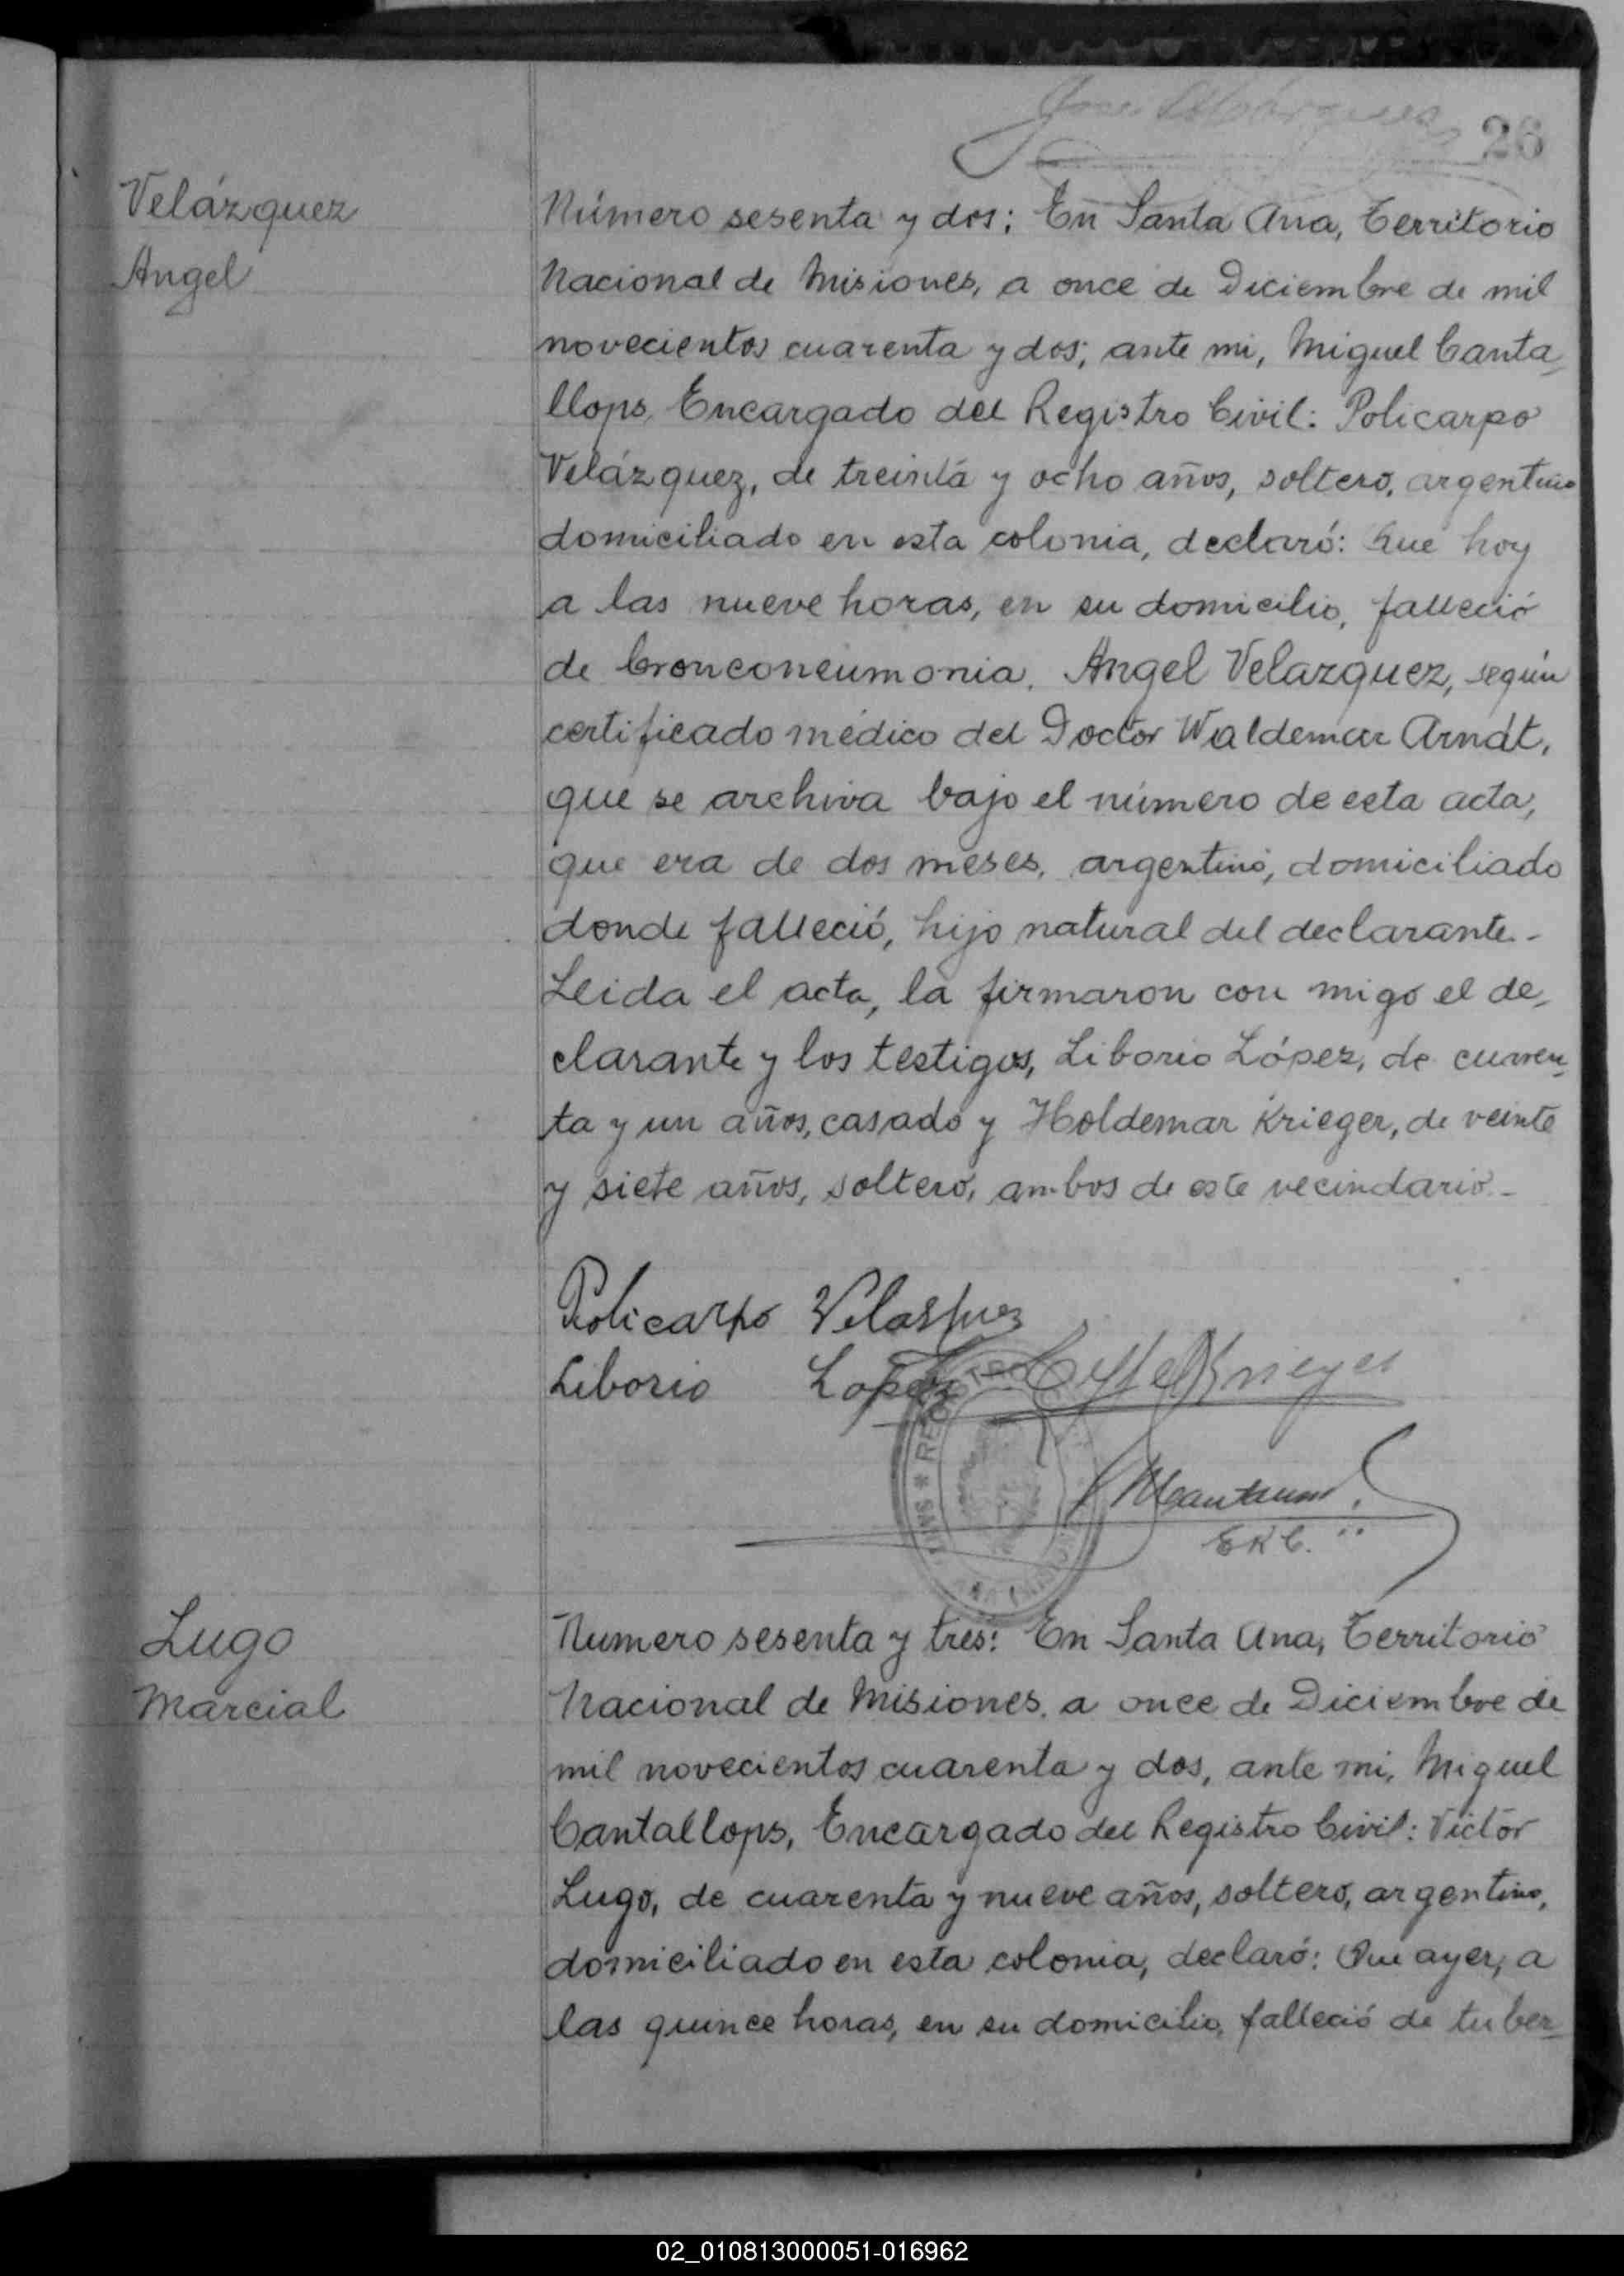 26
Velázquez
Angel
Número sesenta y dos: En Santa Ana, Territorio
Nacional de Misiones, a once de Diciembre de mil
novecientos cuarenta y dos; ante mi, Miguel Canta-
llops, Encargado del Registro Civil: Policarpo
Velázquez, de treinta y ocho años, soltero, argentino
domiciliado en esta colonia, declaró: Que hoy
a las nueve horas, en su domicilio, falleció
de bronconeumonia. Angel Velazquez, según
certificado médico del Doctor Waldemar Arndt,
que se archiva bajo el número de esta acta,
que era de dos meses, argentino, domiciliado
donde falleció, hijo natural del declarante.-
Leida el acta, la firmaron con migo el de-
clarante y los testigos, Liborio López, de cuaren-
ta y un años, casado y Holdemar Krieger, de veinte
y siete años, soltero, ambos de este vecindario.-
Policarpo Velasquez
Liborio Lopez Krieger
REGISTRO
ERC.
Lugo
Marcial
Numero sesenta y tres: En Santa Ana, Territorio
Nacional de Misiones, a once de Diciembre de
mil novecientos cuarenta y dos, ante mi, Miguel
Cantallops, Encargado del Registro Civil: Victor
Lugo, de cuarenta y nueve años, soltero, argentino,
domiciliado en esta colonia, declaró: Que ayer, a
las quince horas, en su domicilio, falleció de tuber-
02_010813000051-016962